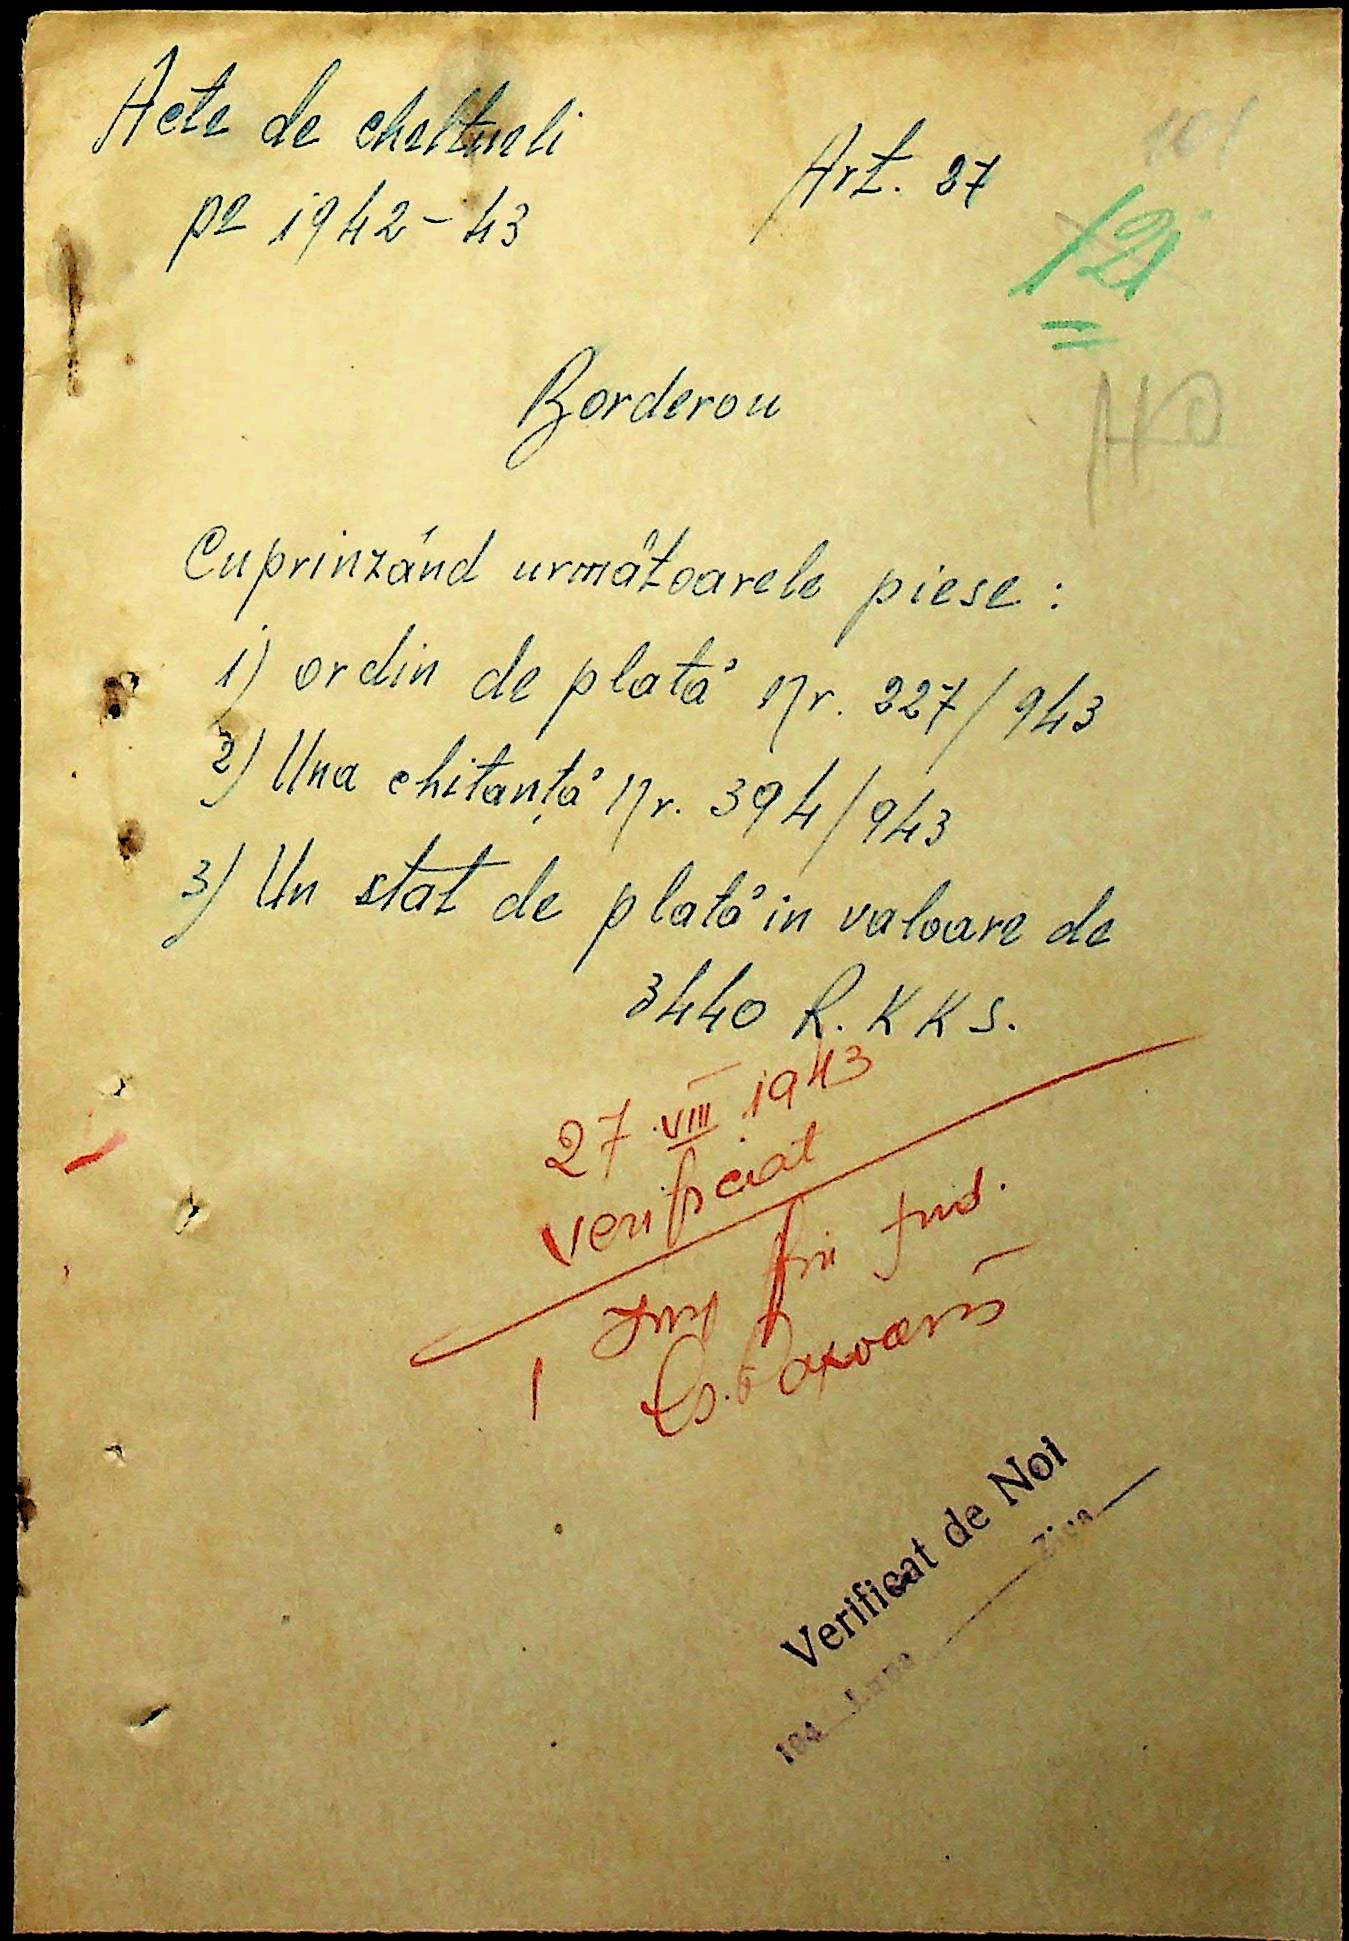 Acte de cheltueli
pe 1942-43
Art. 27
101
121
110
Borderou
Cuprinzând următoarele piese :
1) ordin de plată Nr. 227/943
2) Una chitanță Nr. 394/943
3) Un stat de plată in valoare de
3440 R.K.K.S.
27 VIII 1943
verificat
Verificat de Noi
194 Luna Ziua